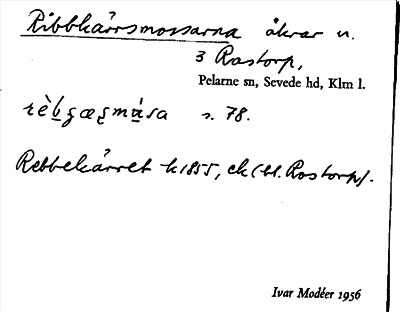 Ribbkärrsmossarna åkrar n.
3 Rostorp,
Pelarne sn, Sevede hd, Klm l.
s. 78.
Rebbekärret k 1855, ek (bl. Rostorp).
Ivar Modéer 1956